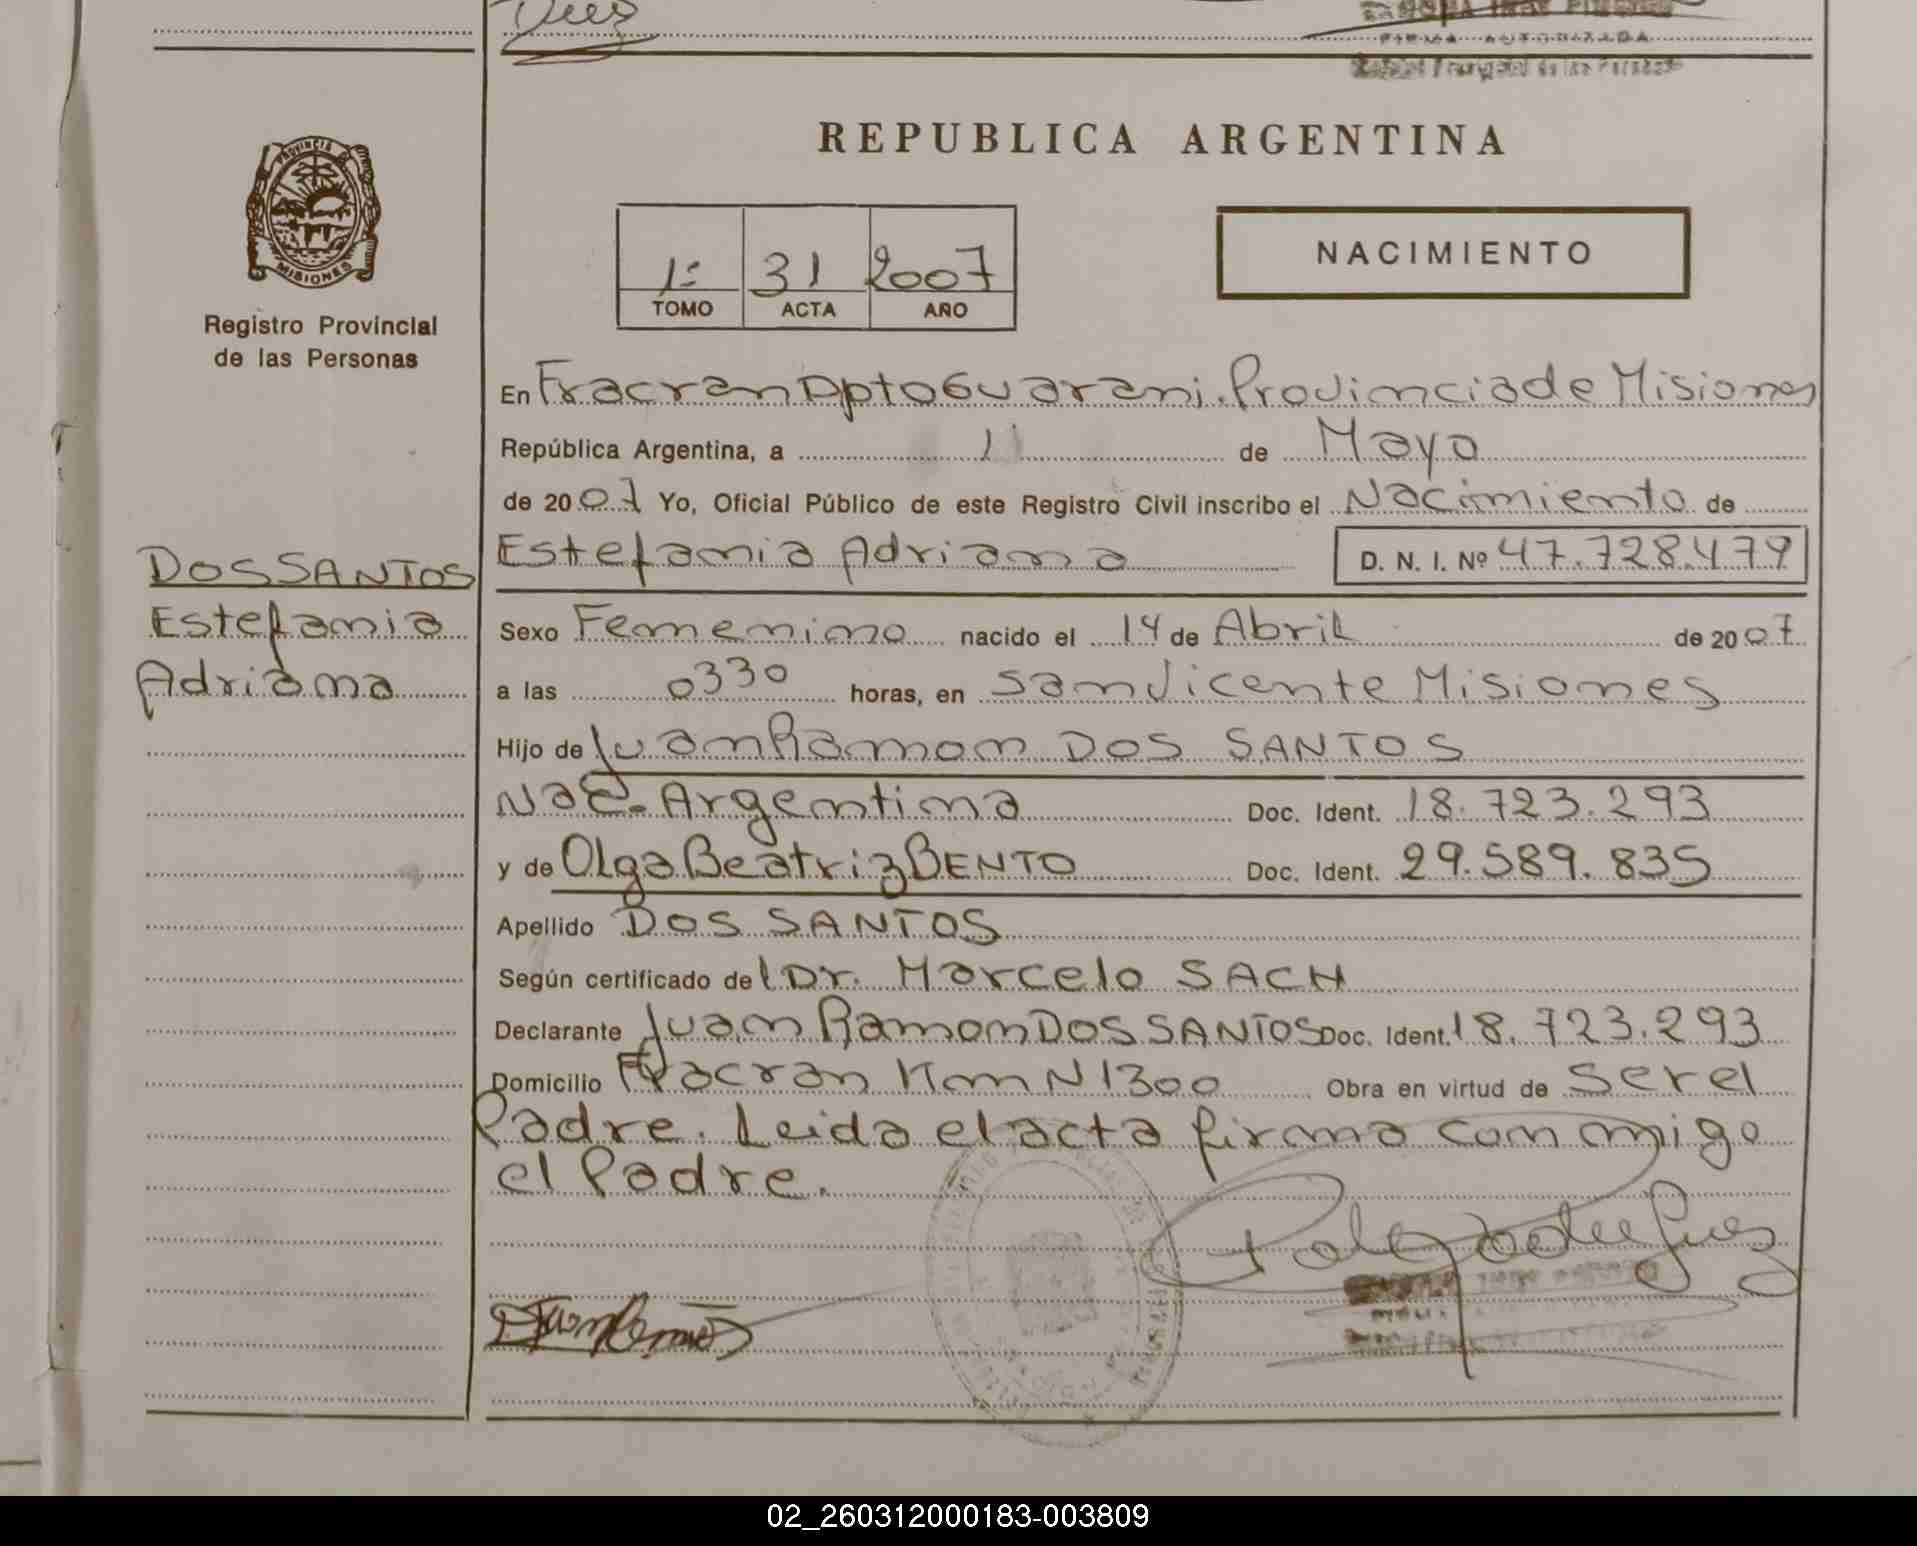 REPUBLICA ARGENTINA
PROVINCIA DE
MISIONES
Registro Provincial
de las Personas
1º 31 2007
TOMO ACTA AÑO
NACIMIENTO
En Fracran Dpto Guarani. Provincia de Misiones
República Argentina, a 11 de Mayo
de 2007 Yo, Oficial Público de este Registro Civil inscribo el Nacimiento de
DOS SANTOS
Estefania
Adriana
Estefania Adriana D. N. I. Nº 47.728.479
Sexo Femenino nacido el 14 de Abril de 2007
a las 0330 horas, en San Vicente Misiones
Hijo de Juan Ramon DOS SANTOS
Nac. Argentina Doc. Ident. 18.723.293
y de Olga Beatriz BENTO Doc. Ident. 29.589.835
Apellido DOS SANTOS
Según certificado del Dr. Marcelo SACH
Declarante Juan Ramon DOS SANTOS Doc. Ident. 18.723.293
Domicilio Fracran Km N 1300 Obra en virtud de Ser el
Padre. Leida el acta firma conmigo
el Padre.
02_260312000183-003809